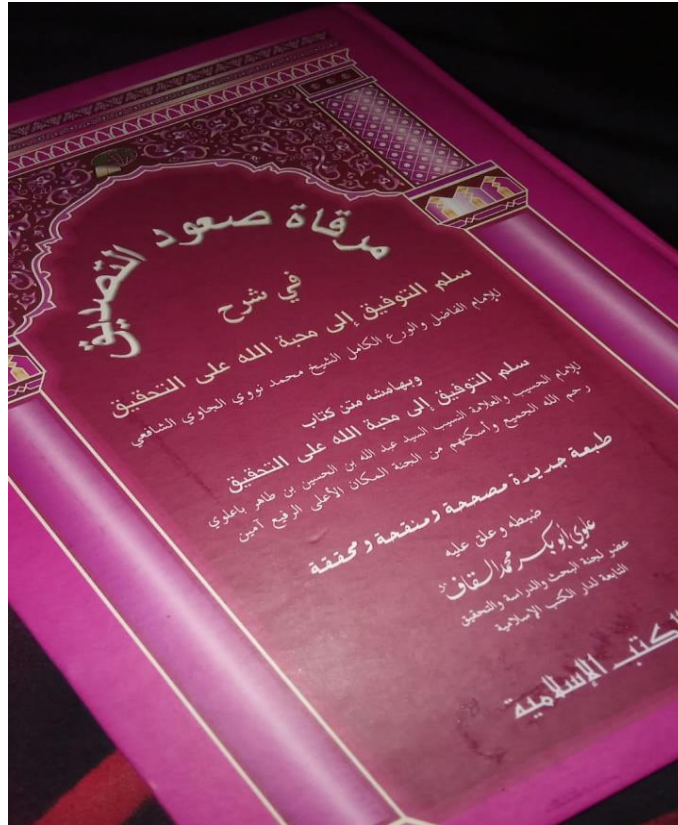 مرقاة صعود التصديق
في شرح
سلم التوفيق إلى محبة الله على التحقيق
للإمام الفاضل والورع الكامل الشيخ محمد نووي الجاوي الشافعي
وبهامشه متن كتاب
سلم التوفيق إلى محبة الله على التحقيق
للإمام الحسيب والعلامة النسيب السيد عبد الله بن الحسين بن طاهر باعلوي
رحم الله الجميع وأسكنهم من الجنة المكان الأعلى الرفيع آمين
طبعة جديدة مصححة ومنقحة ومحققة
ضبطه وعلق عليه
علوي ابو بكر محمد السقاف
عضو لجنة البحث والدراسة والتحقيق
التابعة لدار الكتب الإسلامية
الكتب الإسلامية